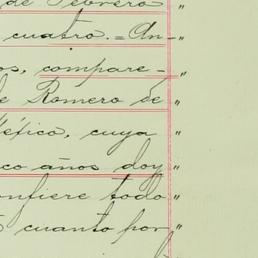 de Febrero
cuatro. = An- "
os, compare- "
de Romero de "
éfico, cuya "
co años doy "
onfiere todo "
cuanto por "